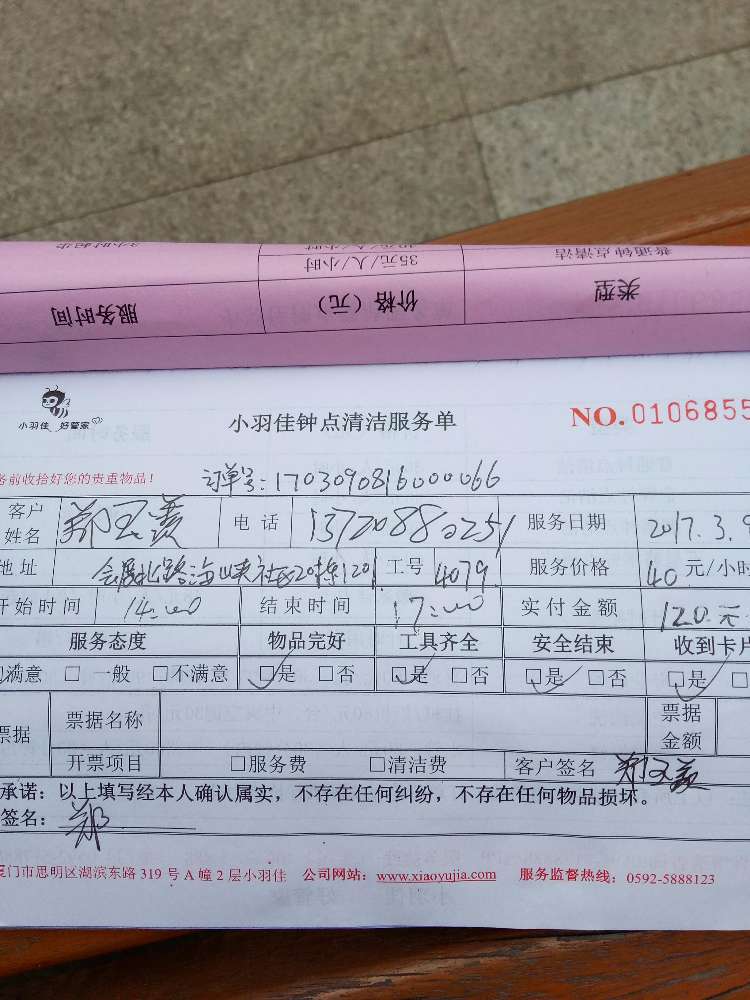 小时起步 40元/人/小时 普通钟点清洁
35元/人/小时
服务时间 价格（元） 类型
小羽佳 好管家
小羽佳钟点清洁服务单
NO.0106855
务前收拾好您的贵重物品！
订单号：1703090816000066
客户姓名 郑 电话 13720880251 服务日期 2017.3.9
地址 会展北路海峡社区20栋1201 工号 4079 服务价格 40元/小时
开始时间 14:00 结束时间 17:00 实付金额 120元
服务态度 物品完好 工具齐全 安全结束 收到卡片
满意 □ 一般 □不满意 □是 □否 □是 □否 □是 □否 □是 □
票据 票据名称 票据金额
开票项目 □服务费 □清洁费 客户签名 郑
承诺：以上填写经本人确认属实，不存在任何纠纷，不存在任何物品损坏。
签名：郑
厦门市思明区湖滨东路 319 号 A 幢 2 层小羽佳 公司网站：www.xiaoyujia.com 服务监督热线：0592-5888123